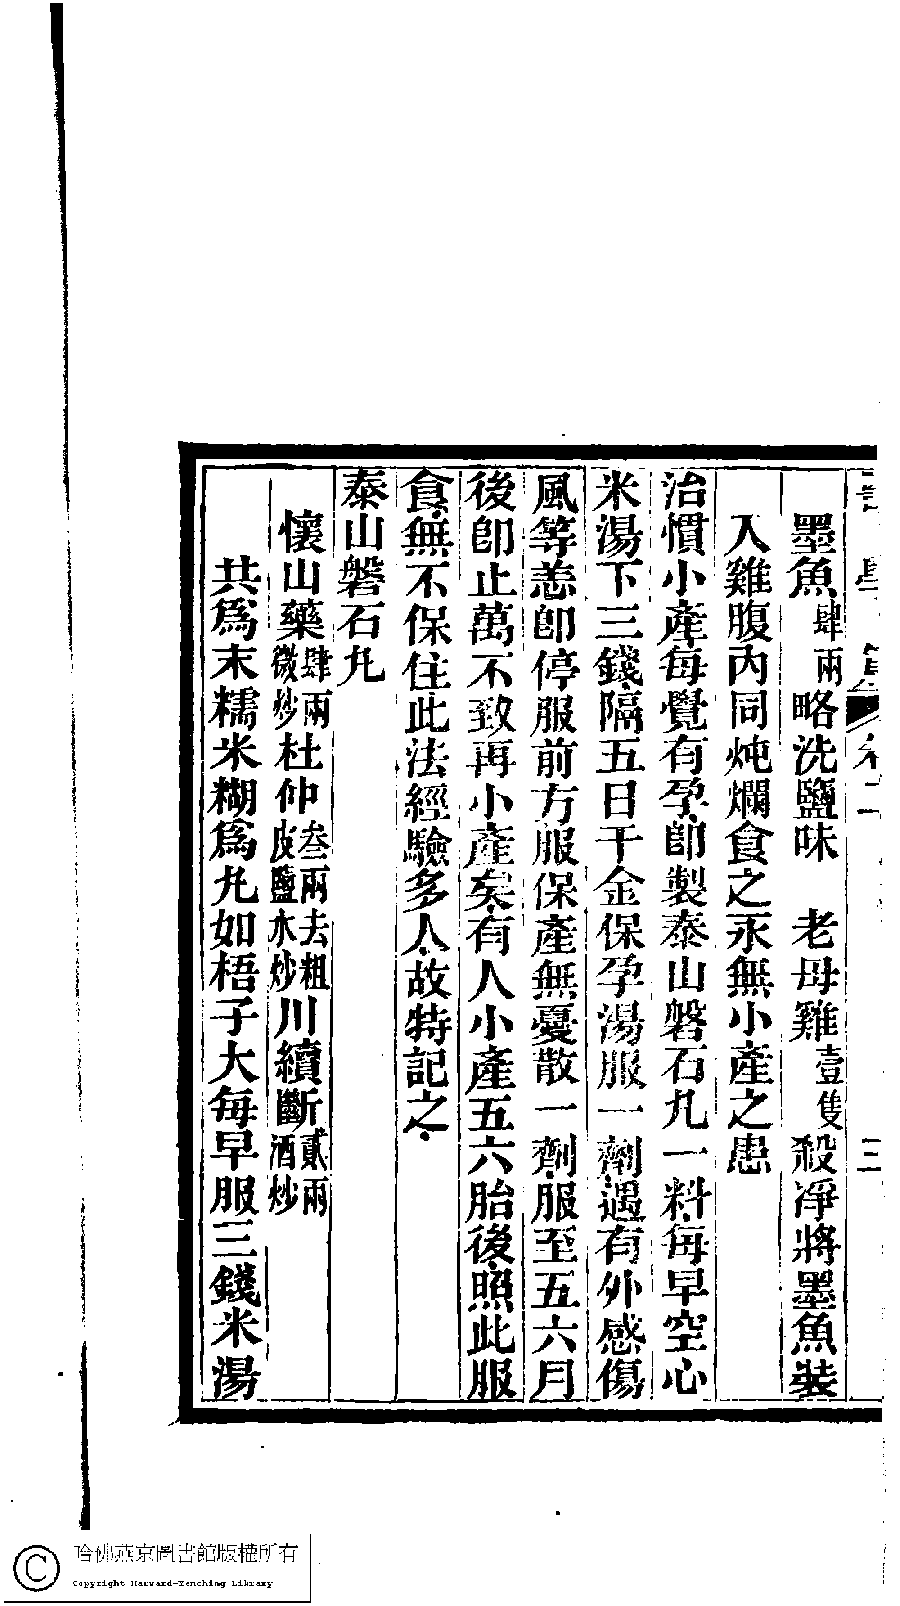 墨魚肆兩略洗鹽味 老母雞壹隻殺凈將墨魚裝
入雞腹內同炖爛食之永無小產之患
治慣小產每覺有孕卽製泰山磐石凡一料每早空心
米湯下三錢隔五日千金保孕湯服一劑遇有外感傷
風等恙卽停服前方服保產無憂散一劑服至五六月
後卽止萬不致再小產矣有人小產五六胎後照此服
食無不保住此法經驗多人故特記之
泰山磐石凡
懷山藥肆兩微炒杜仲叁兩去粗皮鹽水炒川續斷貳兩酒炒
共爲末糯米糊爲凡如梧子大每早服三錢米湯
三
哈佛燕京圖書館版權所有
Copyright Harvard-Yenching Library